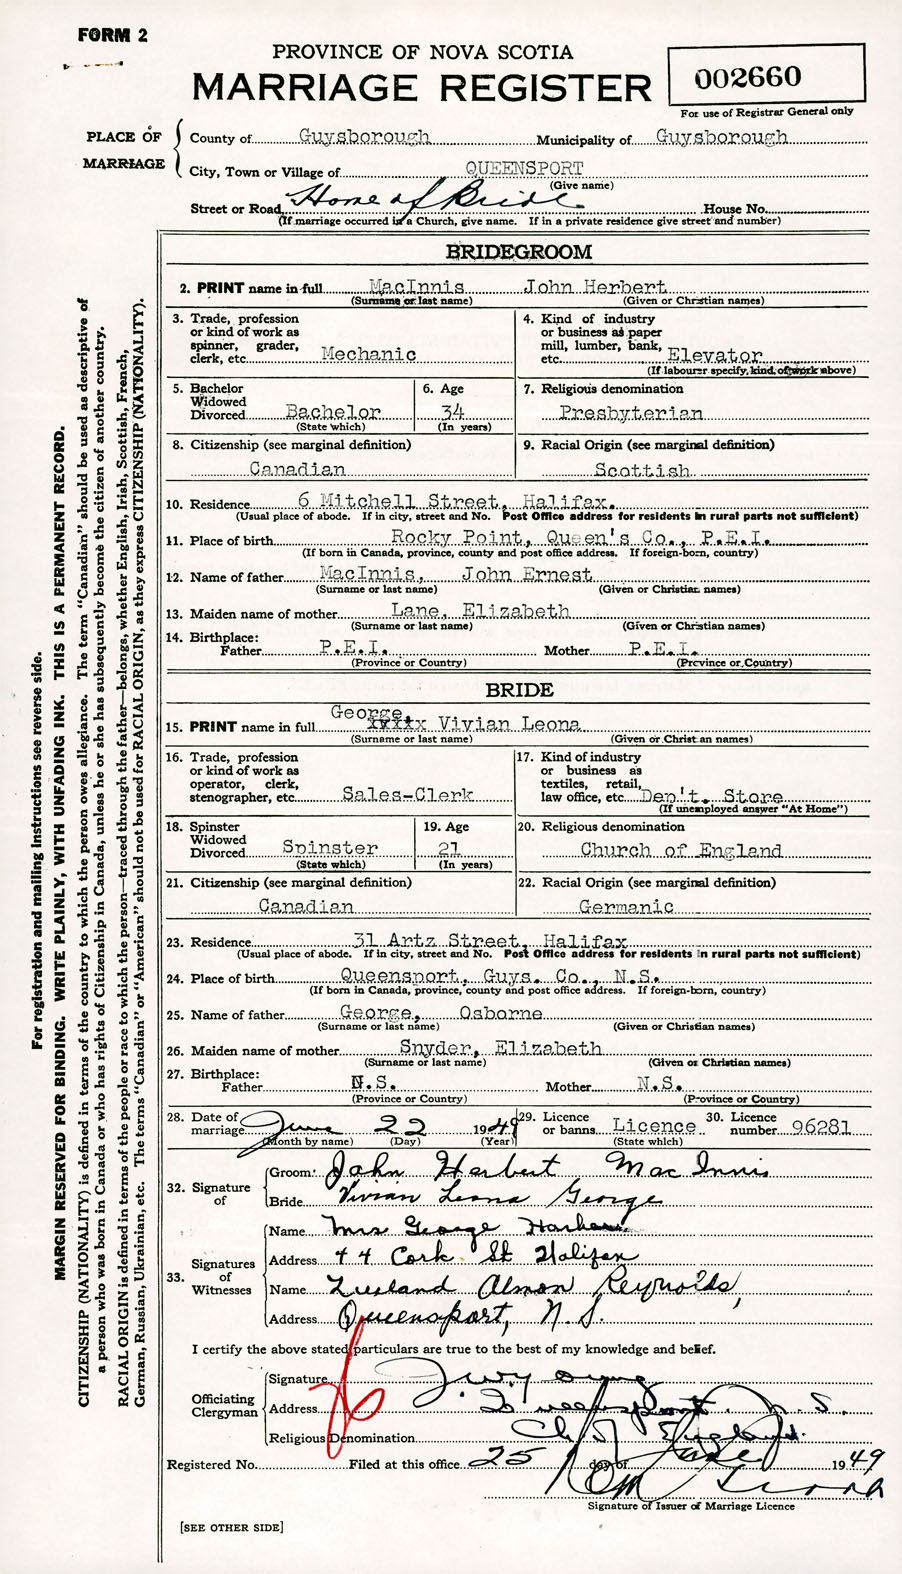 FORM 2
PROVINCE OF NOVA SCOTIA
MARRIAGE REGISTER
002660
For use of Registrar General only
PLACE OF MARRIAGE
County of Guysborough Municipality of Guysborough
City, Town or Village of QUEENSPORT
(Give name)
Street or Road Home of Bride House No.
(If marriage occurred in a Church, give name. If in a private residence give street and number)
BRIDEGROOM
2. PRINT name in full MacInnis John Herbert
(Surname or last name) (Given or Christian names)
3. Trade, profession or kind of work as spinner, grader, clerk, etc. Mechanic
4. Kind of industry or business as paper mill, lumber, bank, etc. Elevator
(If labourer specify kind of work above)
5. Bachelor Widowed Divorced Bachelor
(State which)
6. Age 34
(In years)
7. Religious denomination
Presbyterian
8. Citizenship (see marginal definition)
Canadian
9. Racial Origin (see marginal definition)
Scottish
10. Residence 6 Mitchell Street, Halifax.
(Usual place of abode. If in city, street and No. Post Office address for residents in rural parts not sufficient)
11. Place of birth Rocky Point, Queen's Co., P.E.I.
(If born in Canada, province, county and post office address. If foreign-born, country)
12. Name of father MacInnis, John Ernest
(Surname or last name) (Given or Christian names)
13. Maiden name of mother Lane, Elizabeth
(Surname or last name) (Given or Christian names)
14. Birthplace:
Father P.E.I. Mother P.E.I.
(Province or Country) (Province or Country)
BRIDE
George,
15. PRINT name in full xxxxx Vivian Leona
(Surname or last name) (Given or Christian names)
16. Trade, profession or kind of work as operator, clerk, stenographer, etc. Sales-Clerk
17. Kind of industry or business as textiles, retail, law office, etc. Dep't. Store
(If unemployed answer "At Home")
18. Spinster Widowed Divorced Spinster
(State which)
19. Age 21
(In years)
20. Religious denomination
Church of England
21. Citizenship (see marginal definition)
Canadian
22. Racial Origin (see marginal definition)
Germanic
23. Residence 31 Artz Street, Halifax
(Usual place of abode. If in city, street and No. Post Office address for residents in rural parts not sufficient)
24. Place of birth Queensport, Guys. Co., N.S.
(If born in Canada, province, county and post office address. If foreign-born, country)
25. Name of father George, Osborne
(Surname or last name) (Given or Christian names)
26. Maiden name of mother Snyder, Elizabeth
(Surname or last name) (Given or Christian names)
27. Birthplace:
Father N.S. Mother N.S.
(Province or Country) (Province or Country)
28. Date of marriage June 22 1949
(Month by name) (Day) (Year)
29. Licence or banns Licence
(State which)
30. Licence number 96281
32. Signature of
Groom John Herbert MacInnis
Bride Vivian Leona George
33. Signatures of Witnesses
Name Mrs George
Address 44 Cork St Halifax
Name Almon Reynolds,
Address Queensport, N.S.
I certify the above stated particulars are true to the best of my knowledge and belief.
Officiating Clergyman
Signature
Address Queensport N.S.
Religious Denomination Ch of England.
Registered No. Filed at this office 25 day of June 1949
Signature of Issuer of Marriage Licence
[SEE OTHER SIDE]
For registration and mailing instructions see reverse side.
MARGIN RESERVED FOR BINDING. WRITE PLAINLY, WITH UNFADING INK. THIS IS A PERMANENT RECORD.
CITIZENSHIP (NATIONALITY) is defined in terms of the country to which the person owes allegiance. The term "Canadian" should be used as descriptive of
a person who was born in Canada or who has rights of Citizenship in Canada, unless he or she has subsequently become the citizen of another country.
RACIAL ORIGIN is defined in terms of the people or race to which the person—traced through the father—belongs, whether English, Irish, Scottish, French,
German, Russian, Ukrainian, etc. The terms "Canadian" or "American" should not be used for RACIAL ORIGIN, as they express CITIZENSHIP (NATIONALITY).